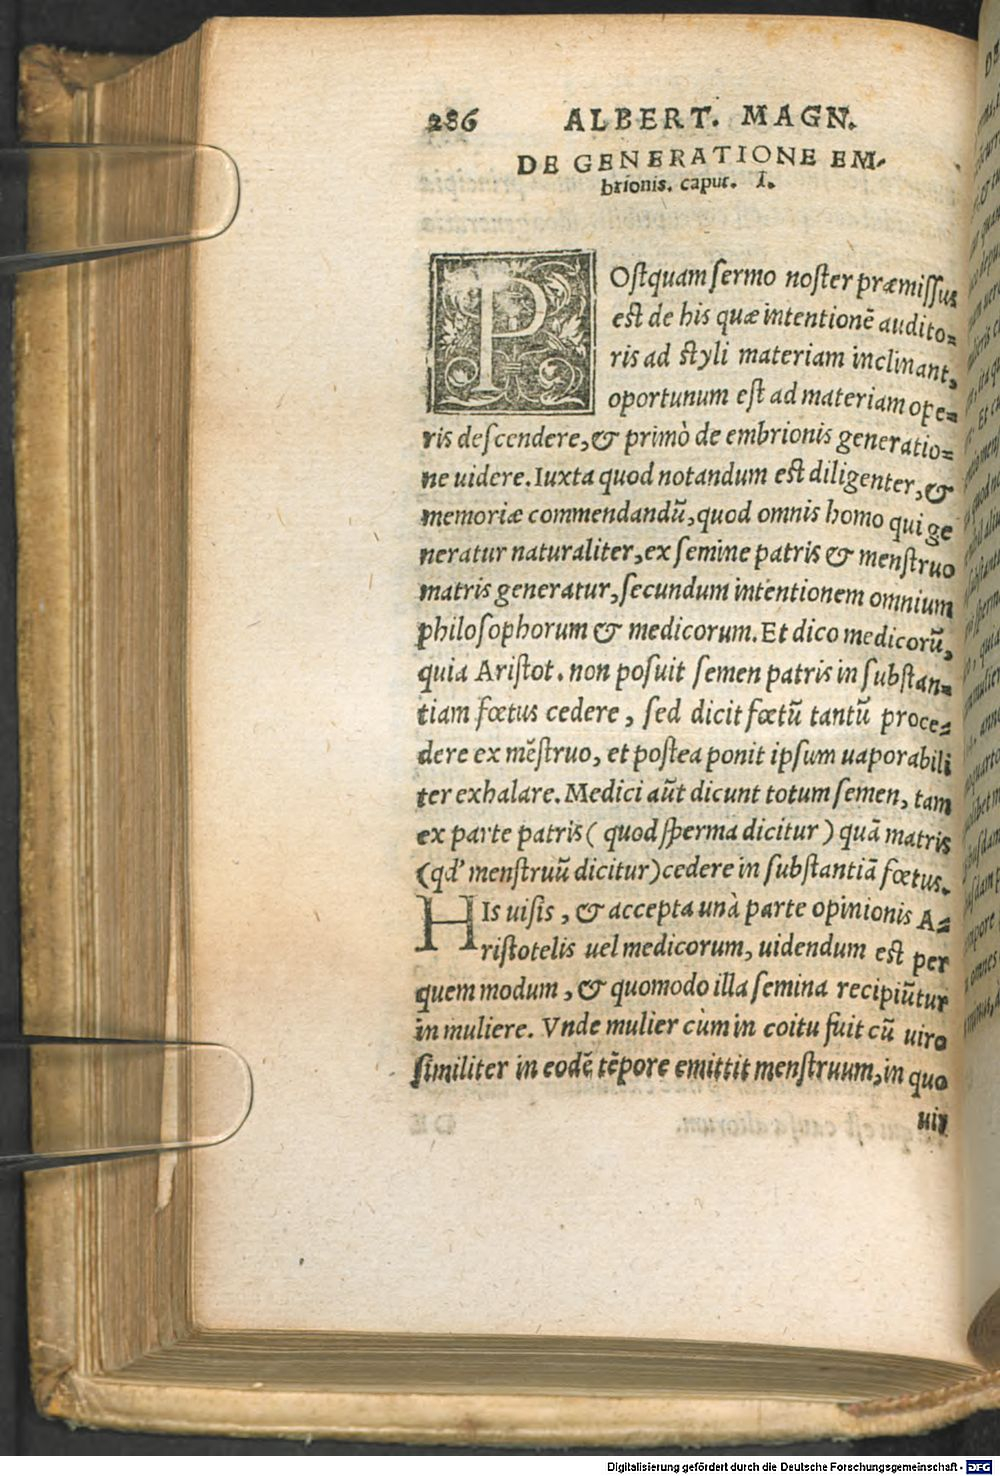 286 ALBERT. MAGN.
DE GENERATIONE EM-
brionis. caput. I.
POstquam sermo noster præmissus
est de his quæ intentionẽ audito-
ris ad styli materiam inclinant,
oportunum est ad materiam ope-
ris descendere, & primò de embrionis generatio-
ne uidere. Iuxta quod notandum est diligenter, &
memoriæ commendandũ, quod omnis homo qui ge
neratur naturaliter, ex semine patris & menstruo
matris generatur, secundum intentionem omnium
philosophorum & medicorum. Et dico medicorũ,
quia Aristot. non posuit semen patris in substan-
tiam fœtus cedere, sed dicit fœtũ tantũ proce-
dere ex mẽstruo, et postea ponit ipsum uaporabili
ter exhalare. Medici aũt dicunt totum semen, tam
ex parte patris ( quod sperma dicitur ) quã matris
(qd' menstruũ dicitur) cedere in substantiã fœtus.
HIs uisis, & accepta unà parte opinionis A-
ristotelis uel medicorum, uidendum est per
quem modum, & quomodo illa semina recipiũtur
in muliere. Vnde mulier cùm in coitu fuit cũ uiro
similiter in eodẽ tẽpore emittit menstruum, in quo
uir
Digitalisierung gefördert durch die Deutsche Forschungsgemeinschaft - DFG